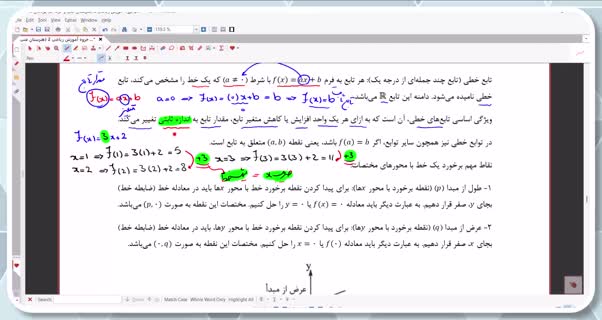 تابع خطی (تابع چند جمله‌ای از درجه یک): هر تابع به فرم f(x) = ax + b با شرط (a ≠ ۰) که یک خط را مشخص می‌کند، تابع
خطی نامیده می‌شود. دامنه این تابع ℝ می‌باشد.
f(x)=ax+b a=0 ⇒ f(x)=(0)x+b = b ⇒ f(x)=b
ویژگی اساسی تابع‌های خطی، آن است که به ازای هر یک واحد افزایش یا کاهش متغیر تابع، مقدار تابع به اندازه ثابتی تغییر می‌کند.
f(x)=3x+2
در توابع خطی نیز همچون سایر توابع، اگر f(a) = b باشد، یعنی نقطه (a, b) متعلق به تابع است.
x=1 ⇒ f(1)=3(1)+2=5 +3 x=3 ⇒ f(3)=3(3)+2=11 +3
نقاط مهم برخورد یک خط با محورهای مختصات:
x=2 ⇒ f(2)=3(2)+2=8
۱- طول از مبدا (p) (نقطه برخورد با محور xها): برای پیدا کردن نقطه برخورد خط با محور xها باید در معادله خط (ضابطه خط)
بجای y، صفر قرار دهیم. به عبارت دیگر باید معادله f(x) = ۰ یا y = ۰ را حل کنیم. مختصات این نقطه به صورت (p, ۰) می‌باشد.
۲- عرض از مبدا (q) (نقطه برخورد با محور yها): برای پیدا کردن نقطه برخورد خط با محور yها، باید در معادله خط (ضابطه خط)
بجای x، صفر قرار دهیم. به عبارت دیگر باید معادله f(۰) یا x = ۰ را حل کنیم. مختصات این نقطه به صورت (۰, q) می‌باشد.
y
عرض از مبدأ
Search
Match Case
Whole Words Only
Highlight All